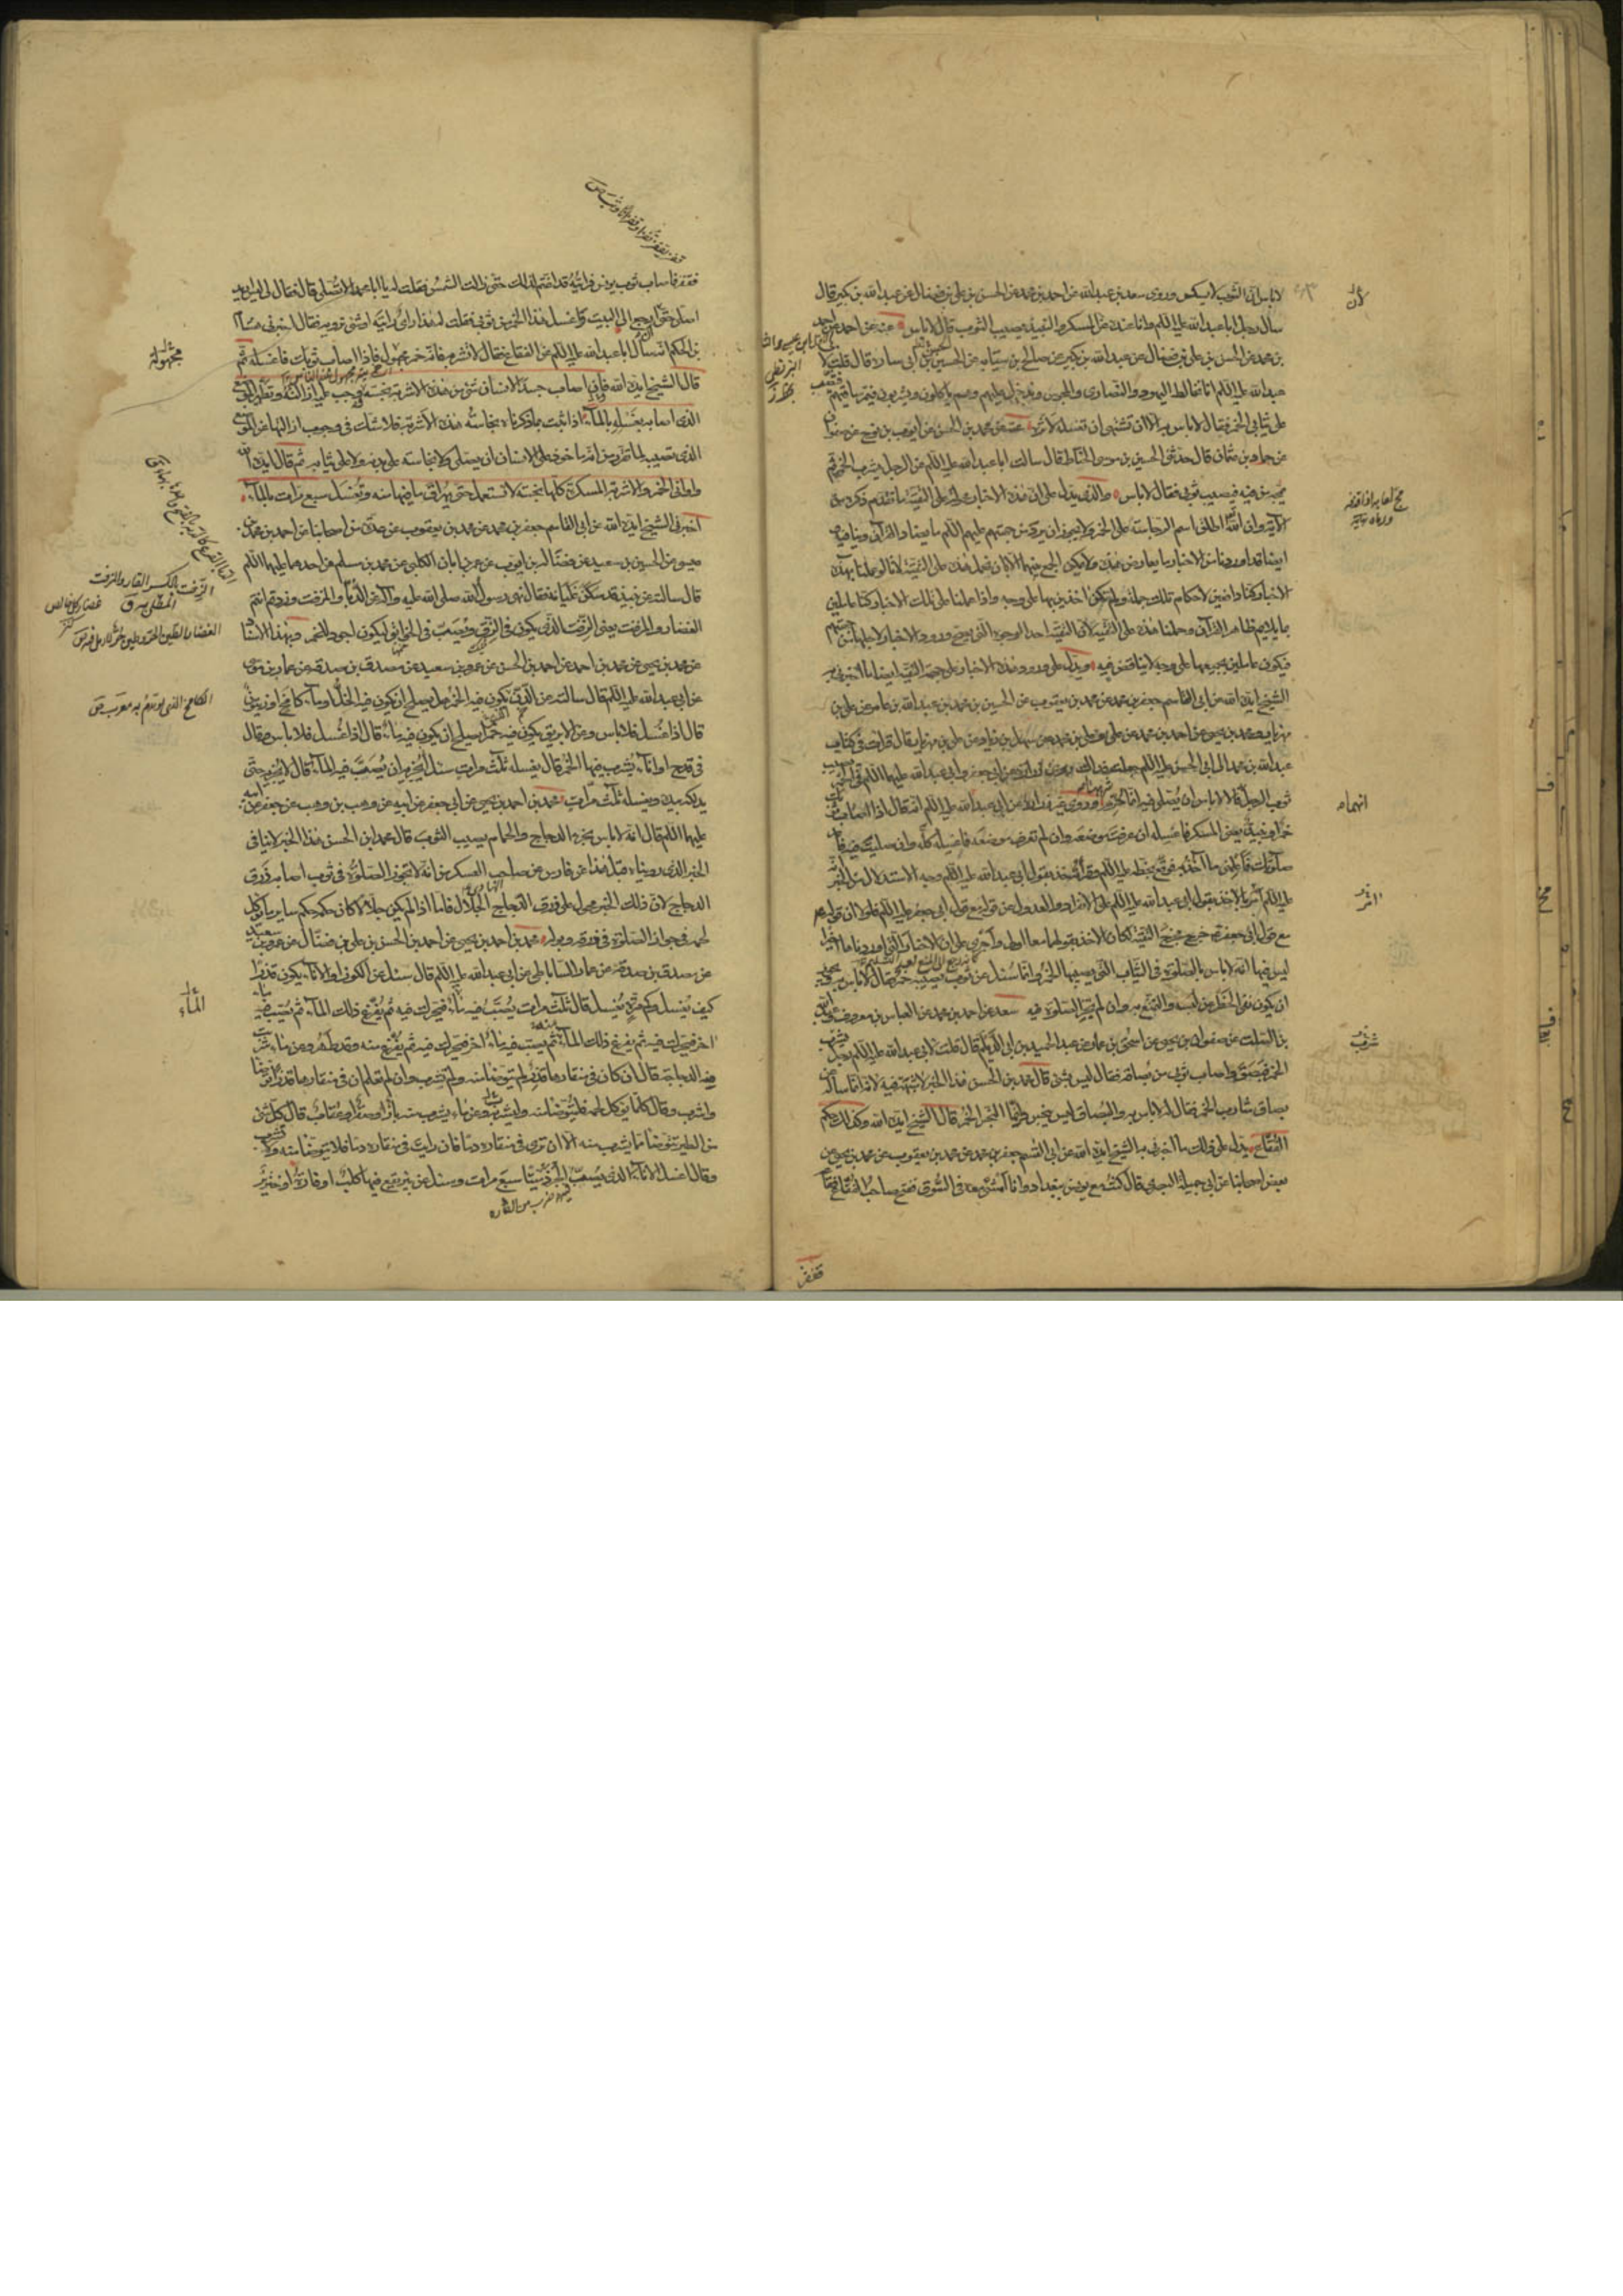 لا باس ان الثوب لا يسكر وروى سعد بن عبد الله عن احمد بن محمد عن الحسن بن علي بن فضال عن عبد الله بن بكير قال
سأل رجل ابا عبد الله عليه السلام وانا عنده عن المسكر والنبيذ يصيب الثوب قال لا باس
بن محمد عن الحسن بن علي بن فضال عن عبد الله بن بكير عن صالح بن سيابة عن الحسين بن ابي سارة قال قلت لا
عبد الله عليه السلام انا نخالط اليهود والنصارى والمجوس وندخل عليهم وهم ياكلون ويشربون فيمر ساقيهم
على ثيابي الخمر فقال لا باس به الا ان تشتهي ان تغسله لاثره عنه عن محمد بن الحسين عن ايوب بن نوح عن صفوان
عن حماد بن عثمان قال حدثني الحسين بن موسى الحناط قال سالت ابا عبد الله عليه السلام عن الرجل يشرب الخمر ثم
يمجه من فيه فيصيب ثوبي فقال لا باس والذي يدل على ان هذه الاخبار محمولة على التقية ما تقدم ذكره من
الآية وان الله تعالى اطلق اسم الرجاسة على الخمر ولا يجوز ان يرد من جهتهم عليهم السلام ما يضاد القرآن وينافيه
ايضا قد اوردنا من الاخبار ما يعارض هذه ولا يمكن الجمع بينهما الا بان نحمل هذه على التقية لانا لو عملنا بهذه
الاخبار كنا دافعين لاحكام تلك جملة ولم نكن اخذين بها على وجه واذا عملنا على تلك الاخبار كنا عاملين
بما يلايم ظاهر القرآن وحملنا هذه على التقية لان التقية احد الوجوه التي يصح ورود الاخبار لاجلها من جهتهم
فنكون عاملين بجميعها على وجه لا تناقض فيه ويدل على ورود هذه الاخبار على جهة التقية ايضا ما اخبرني به
الشيخ ايده الله عن ابي القاسم جعفر بن محمد عن محمد بن يعقوب عن الحسين بن محمد عن عبد الله بن عامر عن علي بن
مهزيار ومحمد بن يحيى عن احمد بن محمد عن علي بن مهزيار وعلي بن محمد عن سهل بن زياد عن علي بن مهزيار قال قرات في كتاب
عبد الله بن محمد الى ابي الحسن عليه السلام جعلت فداك روى زرارة عن ابي جعفر وابي عبد الله عليهما السلام في الخمر يصيب
ثوب الرجل قالا لا باس ان يصلي فيه انما حرم شربها وروى غير زرارة عن ابي عبد الله عليه السلام انه قال اذا اصاب ثوبك
خمر او نبيذ يعني المسكر فاغسله ان عرفت موضعه وان لم تعرف موضعه فاغسله كله وان صليت فيه فاعد
صلوتك فاعلمني ما آخذ به فوقع بخطه عليه السلام وقرأته خذ بقول ابي عبد الله عليه السلام وجه الاستدلال من الخبر
عليه السلام امر بالاخذ بقول ابي عبد الله عليه السلام على الانفراد والعدول عن قوله مع قول ابي جعفر عليه السلام فلولا ان قوله
مع قول ابي جعفر خرج مخرج التقية لكان الاخذ بقولهما معا اولى واحرى على ان الاخبار التي اوردناها اخيرا
ليس فيها انه لا باس بالصلوة في الثياب التي يصيبها الخمر وانما سئل عن ثوب يصيبه خمر فقال لا باس به
ان يكون نفى الحظر عن لبسه والتمتع به وان لم تجز الصلوة فيه سعد عن احمد بن محمد عن العباس بن معروف
بن الصلت عن صفوان بن يحيى عن اسحق بن عمار عن عبد الحميد بن ابي الديلم قال قلت لابي عبد الله عليه السلام رجل يشرب
الخمر فبصق فاصاب ثوبي من بصاقه فقال ليس بشئ قال محمد بن الحسن هذا الخبر لا شبهة فيه لانه انما ساله عن
بصاق شارب الخمر فقال له لا باس به والبصاق ليس بنجس وانما النجس الخمر قال الشيخ ايده الله وكذلك حكم
الفقاع يدل على ذلك ما اخبرني به الشيخ ايده الله عن ابي القسم جعفر بن محمد عن محمد بن يعقوب عن محمد بن يحيى عن
بعض اصحابنا عن ابي جميلة البصري قال كنت مع يونس ببغداد وانا امشي معه في السوق ففتح صاحب الفقاع فقاعه
فقفز
فقفز فاصاب ثوب يونس فرايته قد اغتم لذلك حتى زالت الشمس فقلت له يا ابا محمد الا تصلي قال فقال لي ليس اريد
اصلي حتى ارجع الى البيت فاغسل هذا الخمر من ثوبي فقلت له هذا راي رايته او شئ ترويه فقال اخبرني هشام
بن الحكم انه سأل ابا عبد الله عليه السلام عن الفقاع فقال لا تشربه فانه خمر مجهول فاذا اصاب ثوبك فاغسله ثم
قال الشيخ ايده الله فان اصاب جسد الانسان شئ من هذه الاشربة نجسه ووجب عليه ازالته وتطهير الموضع
الذي اصابه بغسله بالماء اذا ثبت بما ذكرناه نجاسة هذه الاشربة فلا شك في وجوب ازالتها عن الموضع
الذي تصيبه لما تقرر من انه ماخوذ على الانسان ان يصلي ولا نجاسة على بدنه ولا على ثيابه ثم قال ايده الله
واواني الخمر والاشربة المسكرة كلها نجسة لا تستعمل حتى يهراق ما فيها منه وتغسل سبع مرات بالماء
اخبرني الشيخ ايده الله عن ابي القاسم جعفر بن محمد عن محمد بن يعقوب عن عدة من اصحابنا عن احمد بن محمد بن
عيسى عن الحسين بن سعيد عن فضالة بن ايوب عن عمر بن ابان الكلبي عن محمد بن مسلم عن احدهما عليهما السلام
قال سالته عن نبيذ قد سكن غليانه فقال نهى رسول الله صلى الله عليه وآله عن الدبا والمزفت وزدتم انتم
الغضار والمزفت يعني الزفت الذي يكون في الزق ويصب في الخوابي ليكون اجود للخمر وبهذا الاسناد
عن محمد بن يحيى عن محمد بن احمد عن احمد بن الحسن عن عمرو بن سعيد عن مصدق بن صدقة عن عمار بن موسى
عن ابي عبد الله عليه السلام قال سالته عن الدن يكون فيه الخمر هل يصلح ان يكون فيه الخل او ماء كامخ او زيتون
قال اذا غسل فلا باس وعن الابريق يكون فيه خمر ايصلح ان يكون فيه ماء قال اذا غسل فلا باس وقال
في قدح او اناء يشرب فيها الخمر قال يغسله ثلث مرات سئل ايجزيه ان يصب فيه الماء قال لا يجزيه حتى
يدلكه بيده ويغسله ثلث مرات محمد بن احمد بن يحيى عن ابي جعفر عن ابيه عن وهب بن وهب عن جعفر عن ابيه
عليهما السلام قال انه لا باس بخرء الدجاج والحمام يصيب الثوب قال محمد بن الحسن هذا الخبر لا ينافي
الخبر الذي رويناه قبل هذا عن فارس عن صاحب العسكر من انه لا تجوز الصلوة في ثوب اصابه ذرق
الدجاج لان ذلك الخبر محمول على ذرق الدجاج الجلال فاما اذا لم يكن جلالا كان حكمه حكم ساير ما يؤكل
لحمه في جواز الصلوة في ذرقه وبوله محمد بن احمد بن يحيى عن احمد بن الحسن بن علي بن فضال عن عمرو بن سعيد
عن مصدق بن صدقة عن عمار الساباطي عن ابي عبد الله عليه السلام قال سئل عن الكوز او الاناء يكون قذرا
كيف يغسل وكم مرة يغسل قال ثلث مرات يصب فيه ماء فيحرك فيه ثم يفرغ ذلك الماء ثم يصب فيه
اخر فيحرك فيه ثم يفرغ ذلك الماء ثم يصب فيه ماء اخر فيحرك فيه ثم يفرغ منه وقد طهر وعن ماء شربت
منه الدجاجة قال ان كان في منقارها قذر لم تتوضأ منه ولم تشرب وان لم تعلم ان في منقارها قذرا توضأ
واشرب وقال كلما يؤكل لحمه فليتوضأ منه وليشربه وعن ماء يشرب منه باز او صقر او عقاب قال كل شئ
من الطير تتوضأ مما يشرب منه الا ان ترى في منقاره دما فان رايت في منقاره دما فلا تتوضأ منه ولا تشرب
وقال اغسل الاناء الذي يصيب فيه الجرذ ميتا سبع مرات وسئل عن بئر يقع فيها كلب او فارة او خنزير
مجهولة
الماء